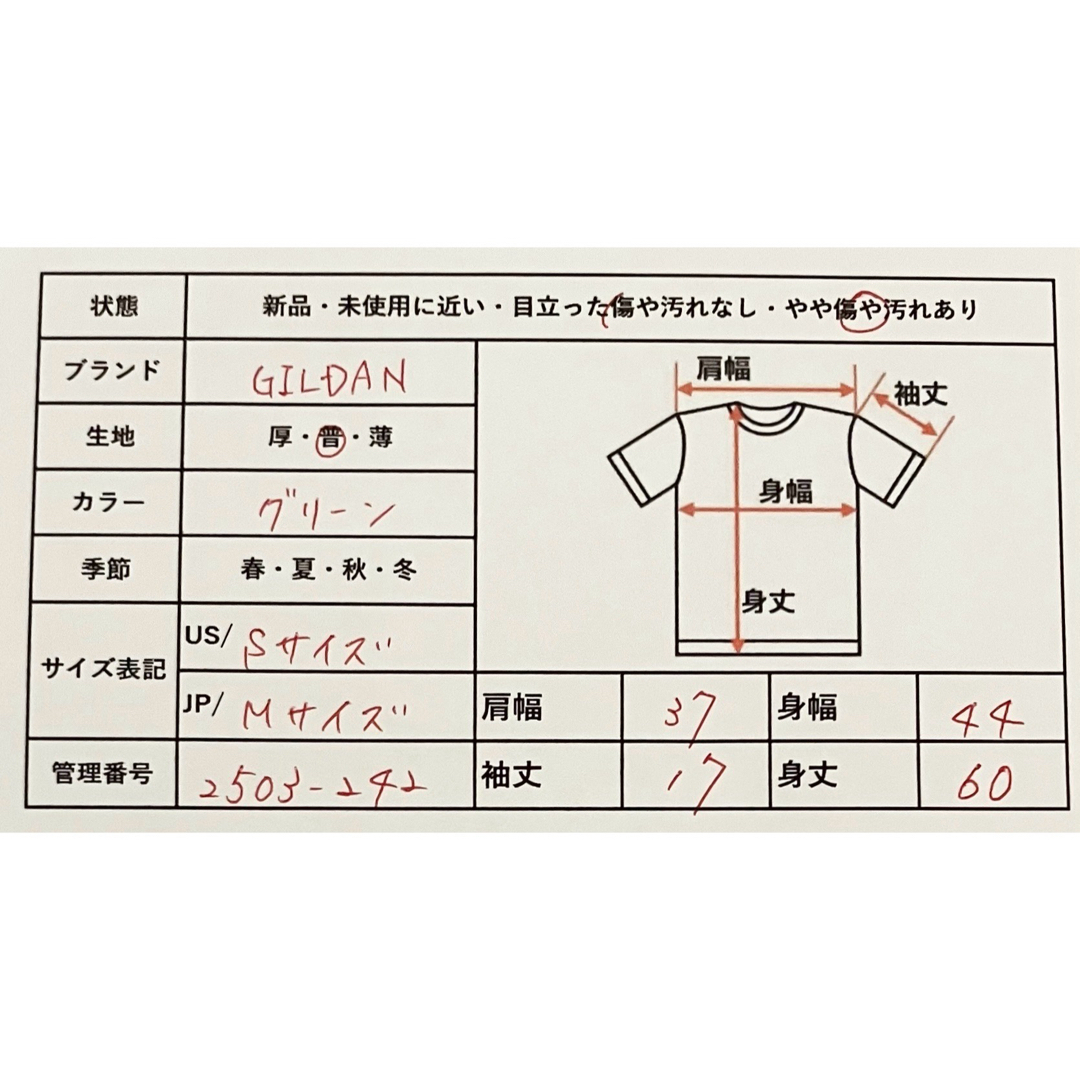 状態 新品・未使用に近い・目立った傷や汚れなし・やや傷や汚れあり
ブランド GILDAN
生地 厚・普・薄
カラー グリーン
季節 春・夏・秋・冬
サイズ表記
US/ Sサイズ
JP/ Mサイズ
管理番号 2503-242
肩幅
袖丈
身幅
身丈
肩幅 37 身幅 44
袖丈 17 身丈 60